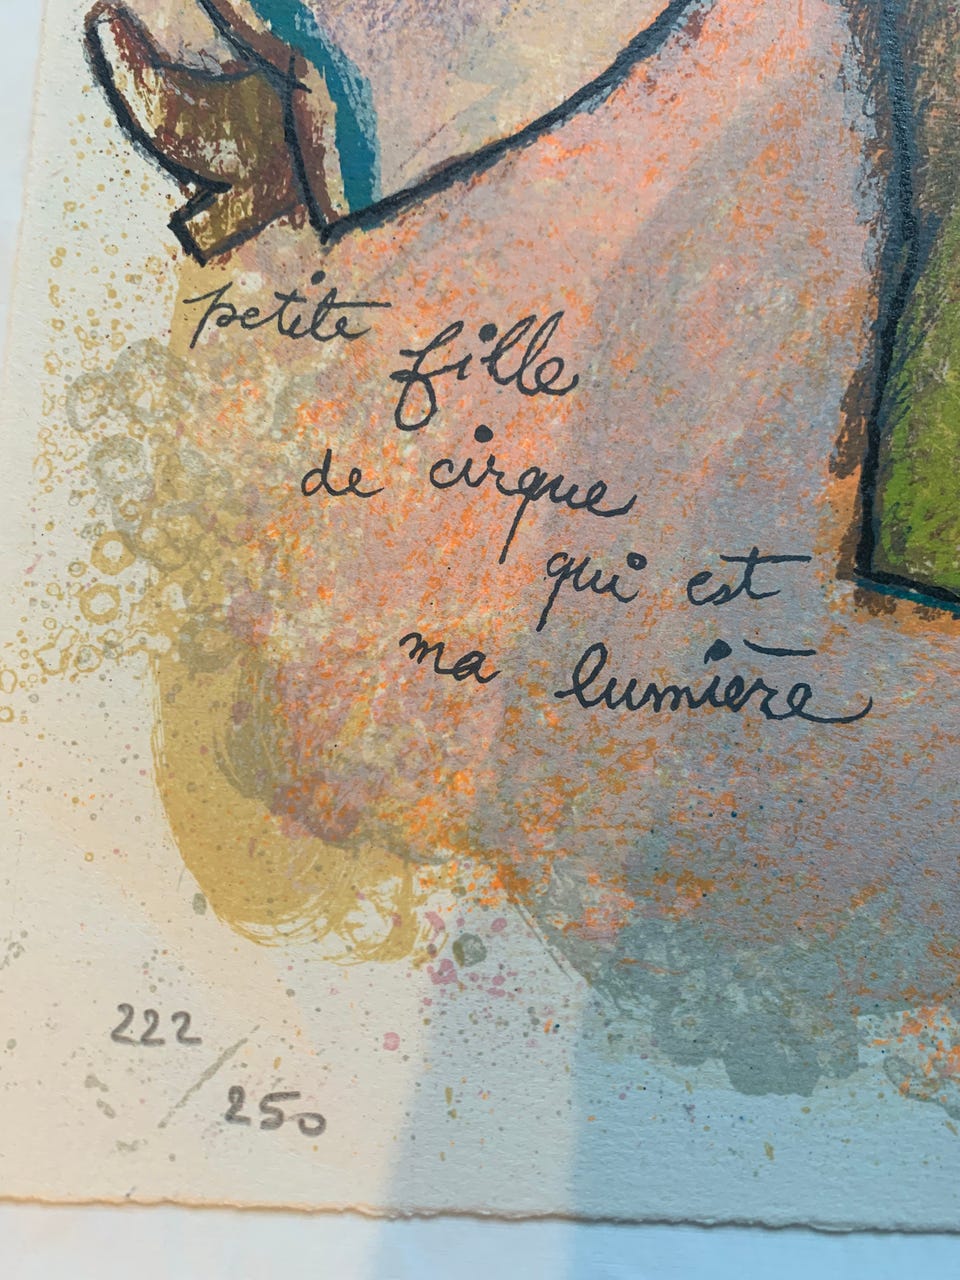 petite
fille
de cirque
qui est
ma lumière
222
/
250